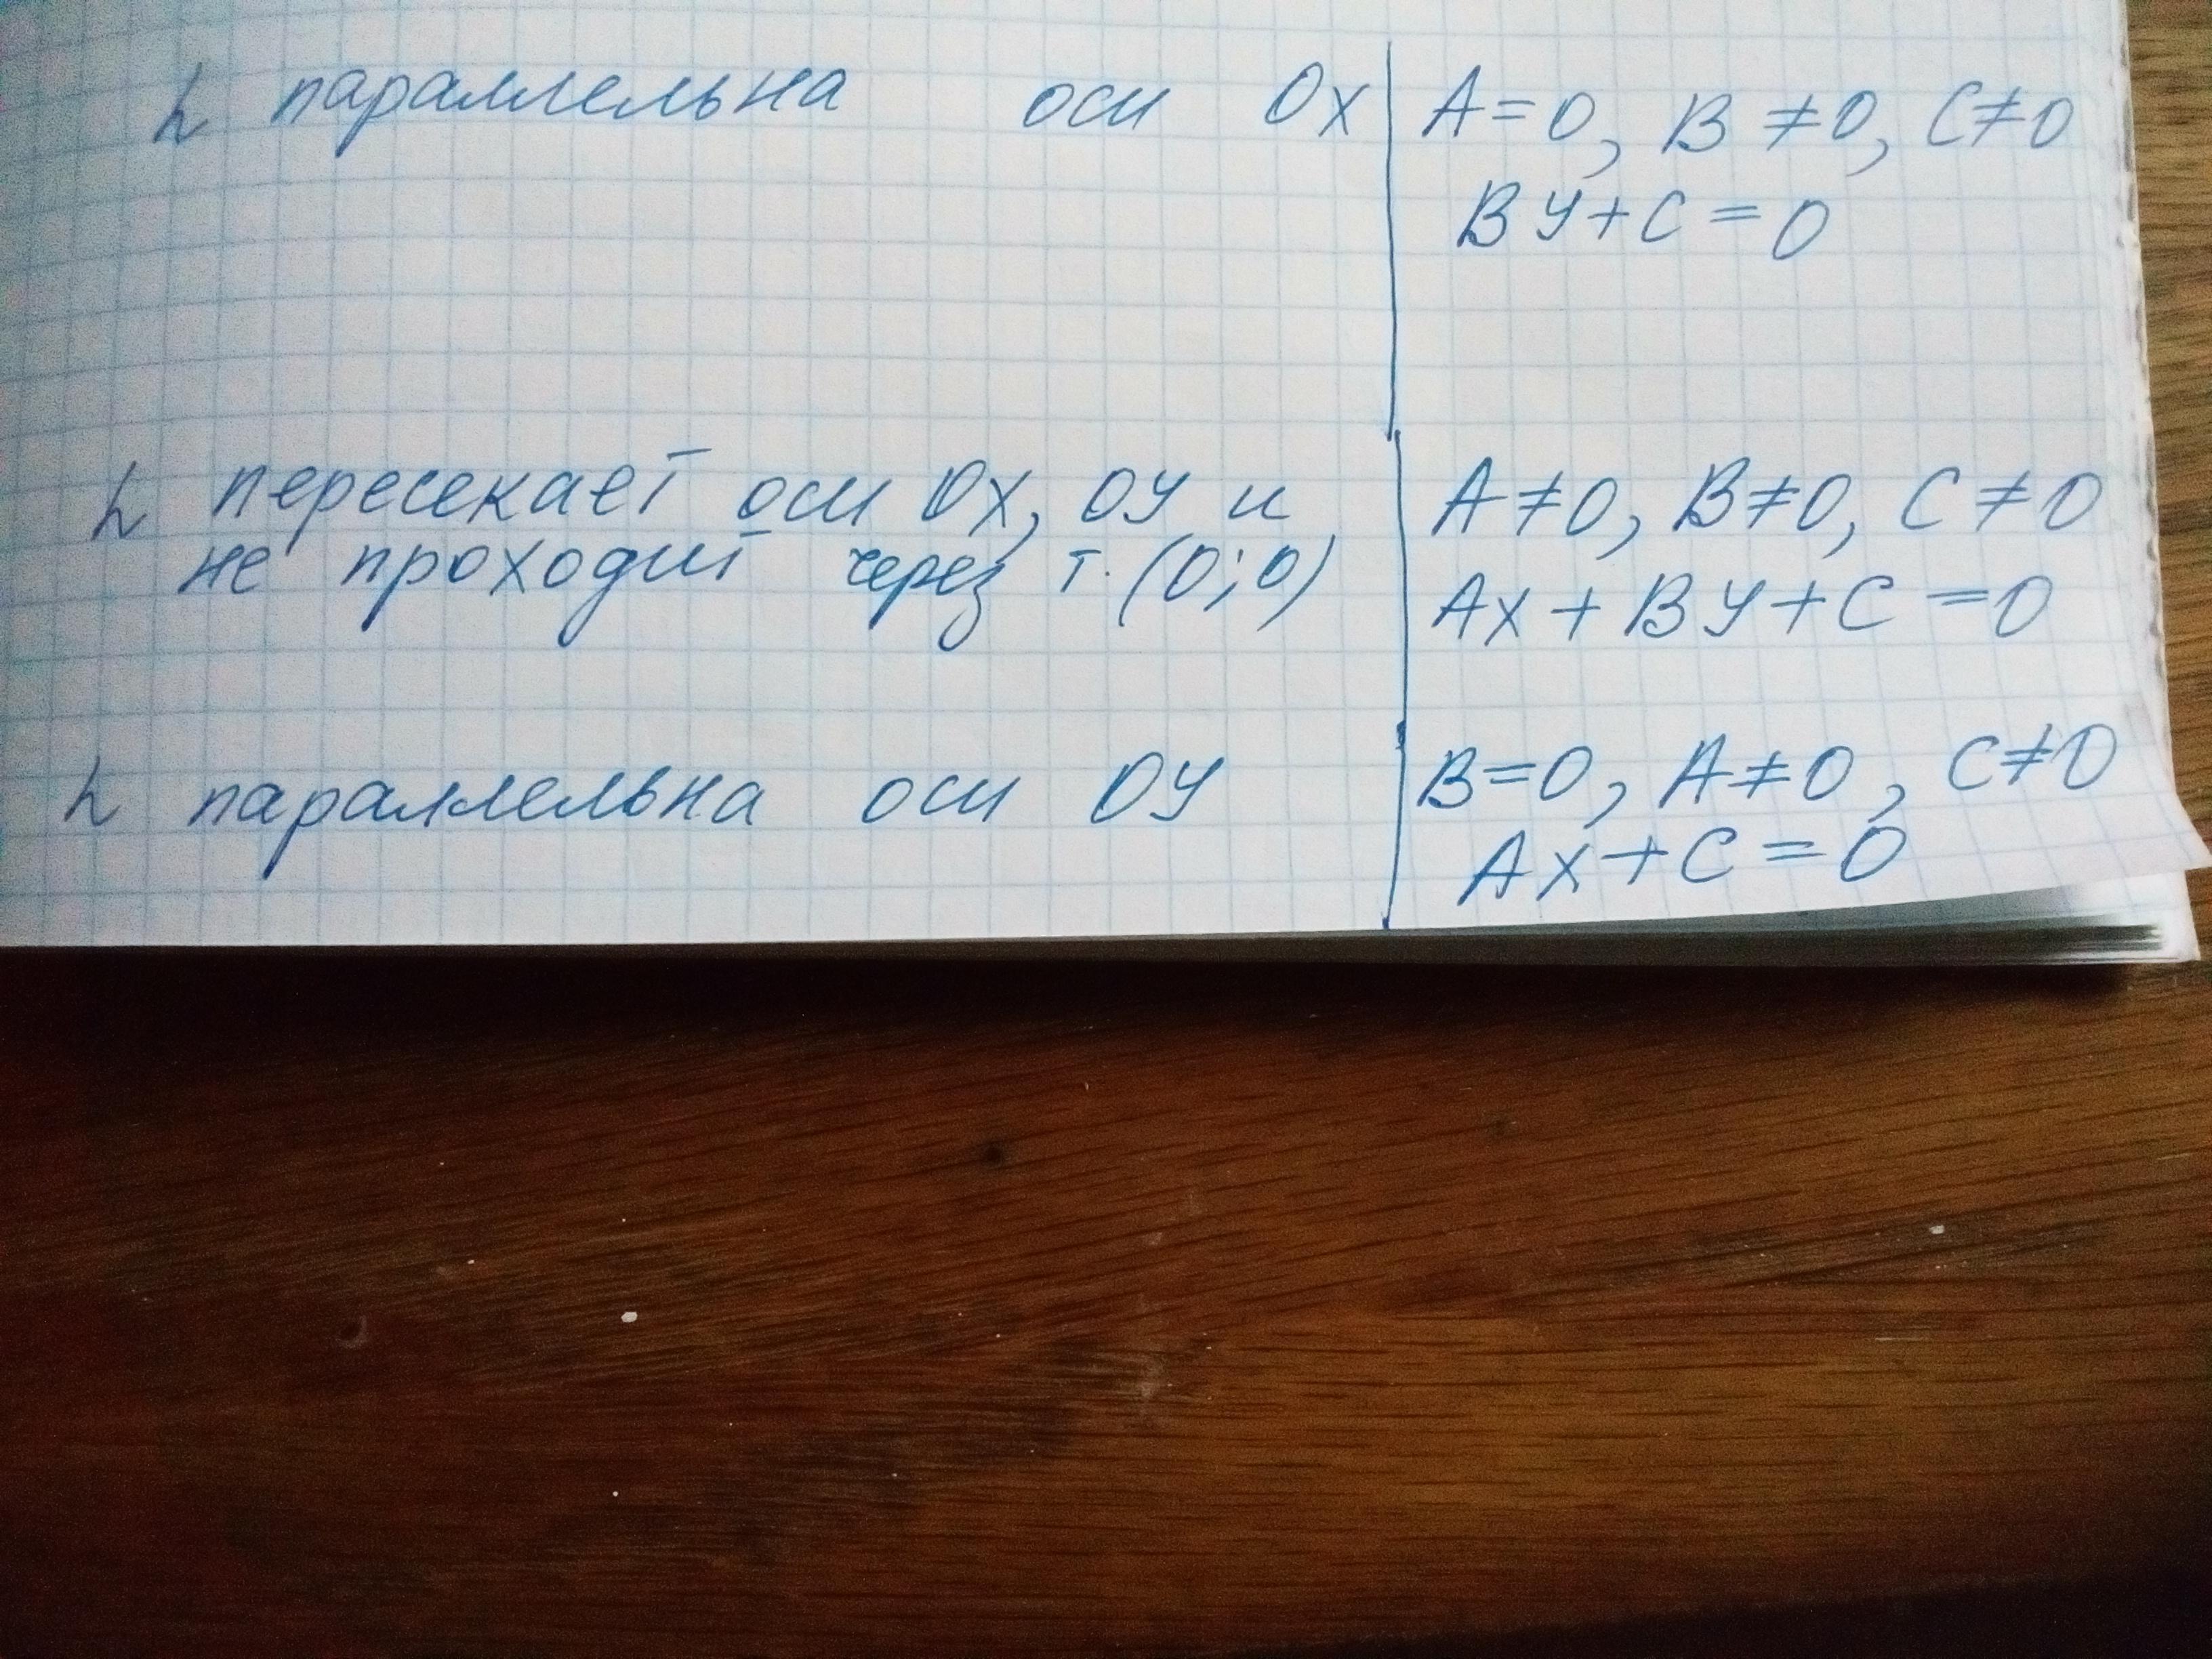 L параллельна оси Ox
A=0, B≠0, C≠0
By+C=0
L пересекает оси Ox, Oy и
не проходит через т. (0;0)
A≠0, B≠0, C≠0
Ax+By+C=0
L параллельна оси Oy
B=0, A≠0, C≠0
Ax+C=0